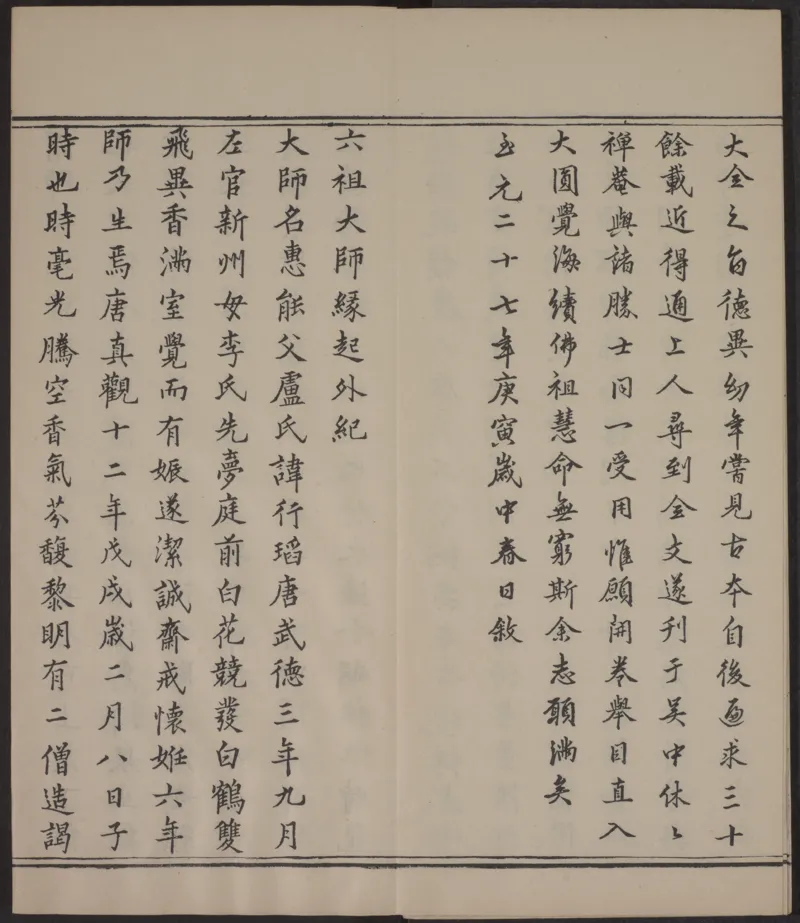 大全之旨德異幼年嘗見古本自後遍求三十
餘載近得通上人尋到全文遂刊于吳中休〻
禅菴與諸勝士同一受用惟願開卷舉目直入
大圓覺海續佛祖慧命無窮斯余志願滿矣
至元二十七年庚寅歲中春日敘
六祖大師緣起外紀
大師名惠能父盧氏諱行瑫唐武德三年九月
左官新州母李氏先夢庭前白花競發白鶴雙
飛異香滿室覺而有娠遂潔誠齋戒懷姙六年
師乃生焉唐真觀十二年戊戌歲二月八日子
時也時毫光騰空香氣芬馥黎明有二僧造謁